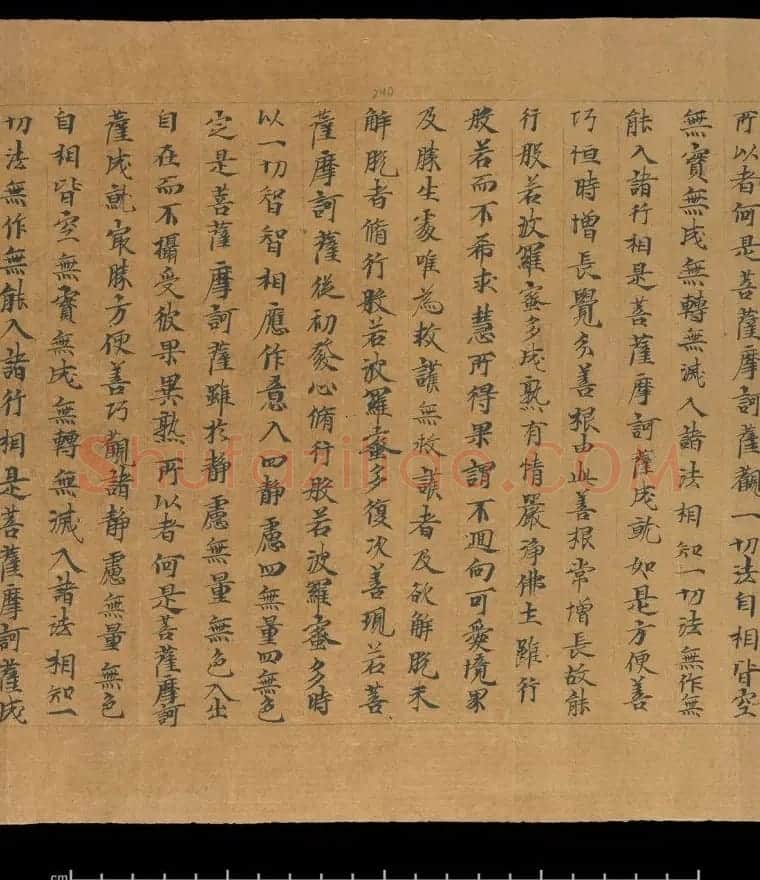 所以者何是菩薩摩訶薩觀一切法自相皆空
無實無成無轉無滅入諸法相知一切法無作無
能入諸行相是菩薩摩訶薩成就如是方便善
巧恒時增長覺分善根由此善根常增長故能
行般若波羅蜜多成熟有情嚴淨佛土雖行
般若而不希求慧所得果謂不迴向可愛境界
及勝生處唯為救護無救護者及欲解脫未
解脫者脩行般若波羅蜜多復次善現若菩
薩摩訶薩從初發心脩行般若波羅蜜多時
以一切智智相應作意入四靜慮四無量四無色
定是菩薩摩訶薩雖於靜慮無量無色入出
自在而不攝受彼果異熟所以者何是菩薩摩訶
薩成就最勝方便善巧觀諸靜慮無量無色
自相皆空無實無成無轉無滅入諸法相知一
切法無作無能入諸行相是菩薩摩訶薩成
240
Shufaziliao.COM
cm